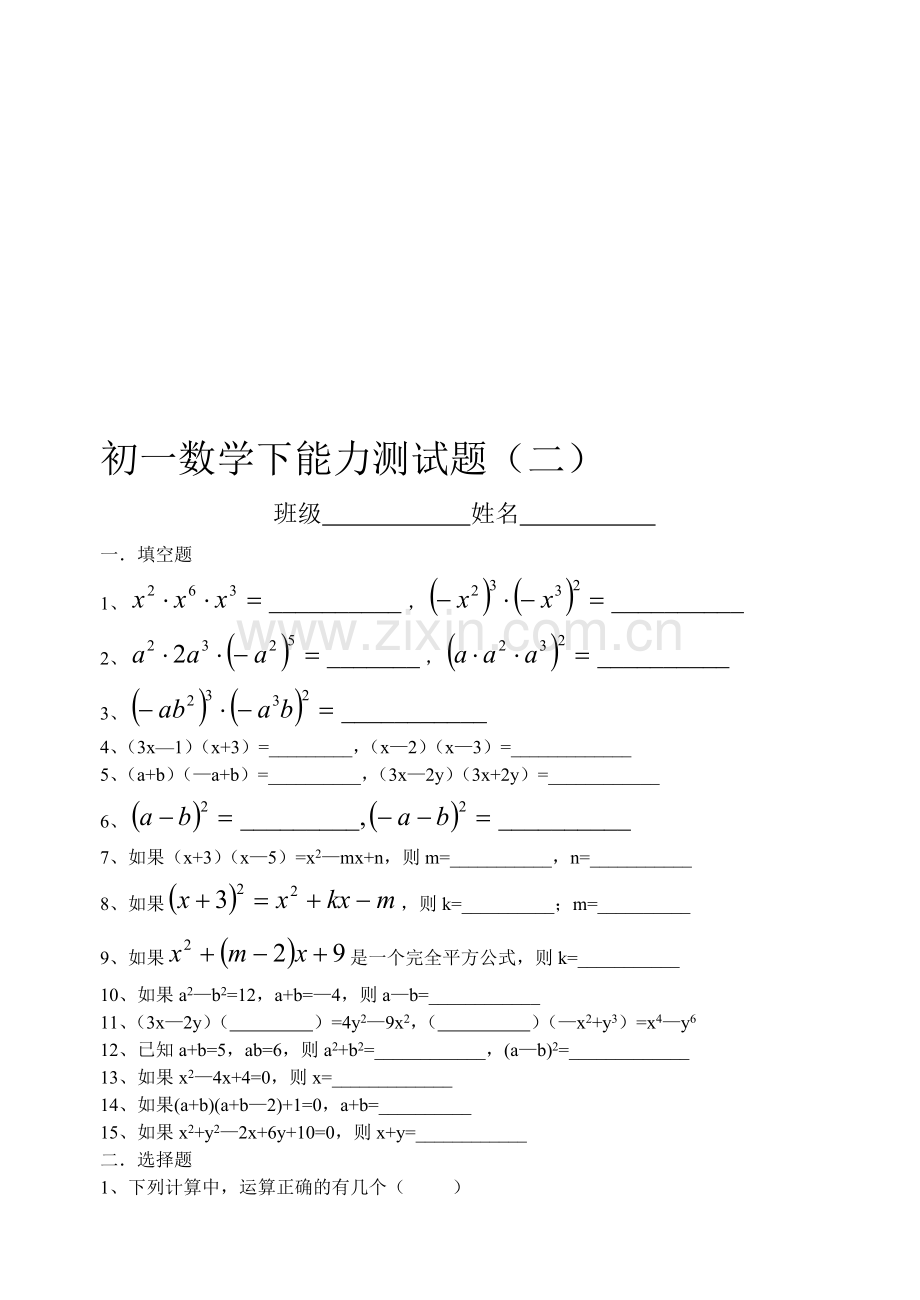 初一数学下能力测试题（二）
班级___________姓名__________
一．填空题
1、x²·x⁶·x³=__________，(−x²)³·(−x³)²=__________
2、a²·2a³·(−a²)⁵=_______，(a·a²·a³)²=__________
3、(−ab²)³·(−a³b)²=___________
4、（3x—1）（x+3）=_________，（x—2）（x—3）=_____________
5、（a+b）（—a+b）=__________，（3x—2y）（3x+2y）=____________
6、(a−b)²=_________,(−a−b)²=__________
7、如果（x+3）（x—5）=x²—mx+n，则m=___________，n=___________
8、如果(x+3)²=x²+kx−m，则k=__________；m=__________
9、如果x²+(m−2)x+9是一个完全平方公式，则k=___________
10、如果a²—b²=12，a+b=—4，则a—b=____________
11、（3x—2y）（_________）=4y²—9x²，（__________）（—x²+y³）=x⁴—y⁶
12、已知a+b=5，ab=6，则a²+b²=____________，(a—b)²=_____________
13、如果x²—4x+4=0，则x=_____________
14、如果(a+b)(a+b—2)+1=0，a+b=__________
15、如果x²+y²—2x+6y+10=0，则x+y=____________
二．选择题
1、下列计算中，运算正确的有几个（　　）
www.zixin.com.cn